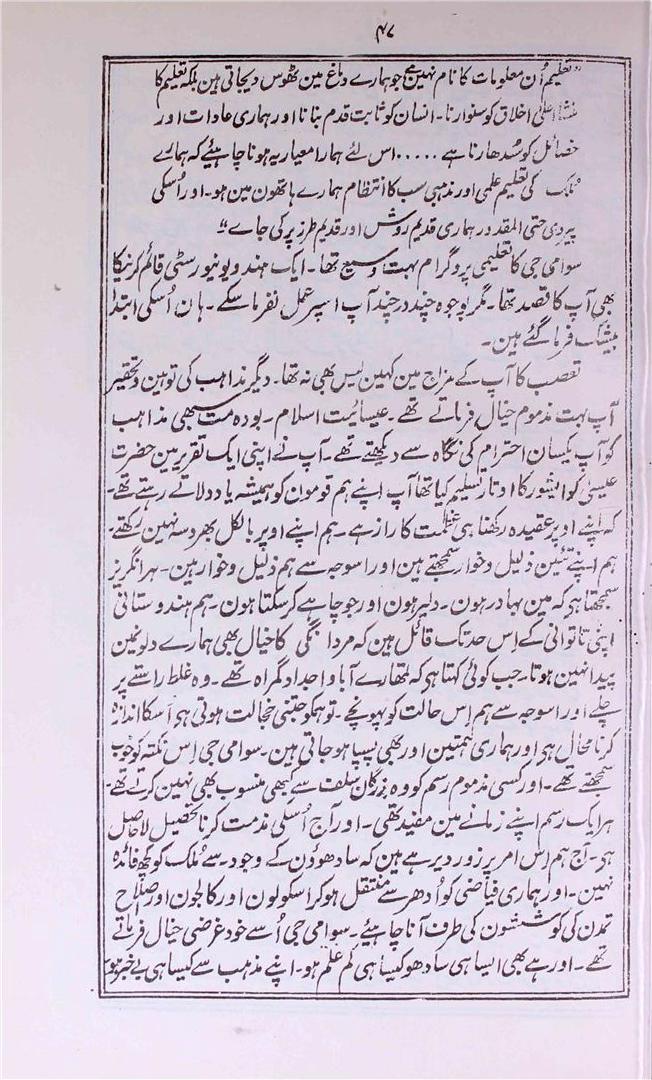 ۴۷
"تعلیم اُن معلومات کا نام نہین ہے جو ہمارے دماغ مین ٹھوس دیجاتی ہین بلکہ تعلیم کا
منشا اعلیٰ اخلاق کو سنوارنا۔ انسان کو ثابت قدم بنانا اور ہماری عادات اور
خصائل کو سُدھارنا ہے ..... اس لئے ہمارا معیار یہ ہونا چاہیئے کہ ہمارے
مُلک کی تعلیم علمی اور مذہبی سب کا انتظام ہمارے ہاتھون مین ہو۔ اور اُسکی
پیروی حتی المقدور ہماری قدیم روش اور قدیم طرز پر کی جاے"
سوامی جی کا تعلیمی پروگرام بہت وسیع تھا۔ ایک ہندو یونیورسٹی قائم کرنیکا
بھی آپ کا قصد تھا۔ مگر بوجوہ چند در چند آپ اسپر عمل نفرما سکے۔ ہان اُسکی ابتدا
بیشک فرما گئے ہین۔
تعصب کا آپ کے مزاج مین کہین لیس بھی نہ تھا۔ دیگر مذاہب کی توہین و تحقیر
آپ بہت مذموم خیال فرماتے تھے۔ عیسائیت اسلام۔ بودہ مت سبھی مذاہب
کو آپ یکسان احترام کی نگاہ سے دیکھتے تھے۔ آپ نے اپنی ایک تقریر مین حضرت
عیسیٰ کو ایشور کا اوتار تسلیم کیا تھا آپ اپنے ہم قومون کو ہمیشہ یاد دلاتے رہتے تھے۔
کہ اپنے اوپر عقیدہ رکھنا ہی عظمت کا راز ہے۔ ہم اپنے اوپر بالکل بھروسہ نہین رکھتے۔
ہم اپنے تئین ذلیل و خوار سمجھتے ہین اور اسوجہ سے ہم ذلیل و خوار ہین۔ ہر انگریز
سمجھتا ہی کہ مین بہادر ہون۔ دلیر ہون اور جو چاہے کر سکتا ہون۔ ہم ہندوستانی
اپنی ناتوانی کے اِس حد تک قائل ہین کہ مردانگی کا خیال بھی ہمارے دلونمین
پیدا نہین ہوتا۔ جب کوئی کہتا ہی کہ تمھارے آبا و اجداد گمراہ تھے۔ وہ غلط راستے پر
چلے اور اسوجہ سے ہم اِس حالت کو پہونچے۔ تو ہمکو جتنی خجالت ہوتی ہی اُسکا اندازہ
کرنا محال ہی اور ہماری ہمتین اور بھی پسپا ہو جاتی ہین۔ سوامی جی اِس نکتہ کو خوب
سمجھتے تھے۔ اور کسی مذموم رسم کو وہ بزرگان سلف سے کبھی منسوب بھی نہین کرتے تھے۔
ہر ایک رسم اپنے زمانے مین مفید تھی۔ اور آج اُسکی مذمت کرنا تحصیل لاحاصل
ہی۔ آج ہم اِس امر پر زور دیر ہے ہین کہ سادھوؤن کے وجود سے مُلک کو کچھ فائدہ
نہین۔ اور ہماری فیاضی کو اُدھر سے منتقل ہو کر اسکولون اور کالجون اور اصلاح
تمدن کی کوششون کی طرف آنا چاہیئے۔ سوامی جی اُسے خود غرضی خیال فرماتے
تھے۔ اور ہے بھی ایسا ہی سادھو کیسا ہی کم علم ہو۔ اپنے مذہب سے کیسا ہی بے خبر ہو۔